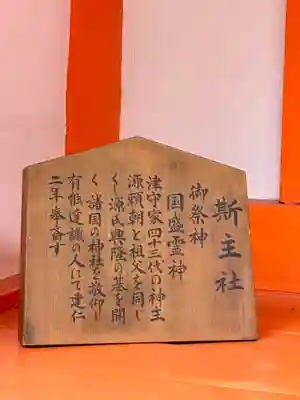 斯主社
御祭神
国盛霊神
津守家四十三代の神主
源頼朝と祖父を同じ
くし源氏興隆の基を開
く諸国の神社を敬仰し
有能達識の人にて建仁
二年奉斎す